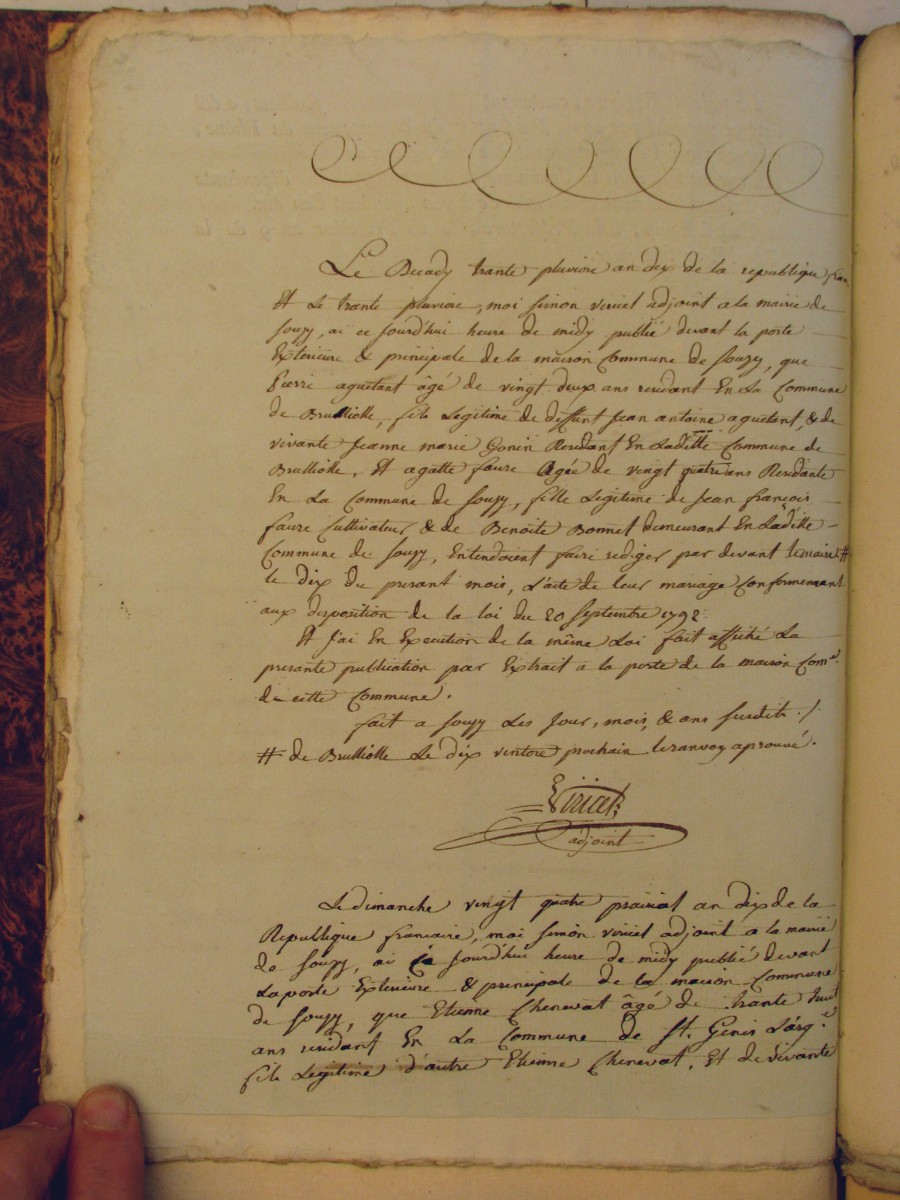 Le Decady trante pluviose an dix de la republique fran.
Et Le trante pluviose, moi simon viricel adjoint a la mairie de
souzy, ai ce jourd'hui heure de midy publié devant la porte
Exterieure & principale de la maison Commune de Souzy, que
Pierre aguetant âgé de vingt deux ans residant En La Commune
de Brulliolle, fils Legitime de deffunt Jean antoine aguetant, & de
vivante Jeanne marie Gonin Residant En Laditte Commune de
Brulliolle, Et agatte faure Agée de vingt quatre ans Residante
En La Commune de Souzy, fille Legitime de Jean françois
faure Cultivateur & de Benoite Bonnet demeurant En Laditte
Commune de Souzy, Entendoient faire rediger par devant le maire #
le dix du presant mois, L'acte de leur mariage Conformement
aux disposition de la loi du 20 Septembre 1792.
Et J'ai En Execution de la même Loi fait affiché La
presante publication par Extrait a la porte de la maison Com.e
de cette Commune.
fait a souzy Les Jour, mois, & ans susdits ./
# de Brulliolle Le dix ventose prochain le ranvoy aprouvé.
Viricel
adjoint
Le dimanche vingt quatre prairial an dix de la
Republique francaise, moi simon viricel adjoint a la mairie
de souzy, ai ce jourd'hui heure de midy publié devant
La porte Exterieure & principale de la maison Commune
de souzy, que Etienne Chenevat âgé de trante huit
ans residant En La Commune de St. Genis L'arg.e
fils Legitime d'autre Etienne Chenevat, Et de vivante